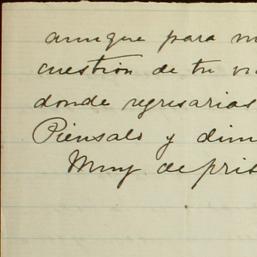 aunque para
cuestion de tu
donde regresarias
Piensalo y
Muy de